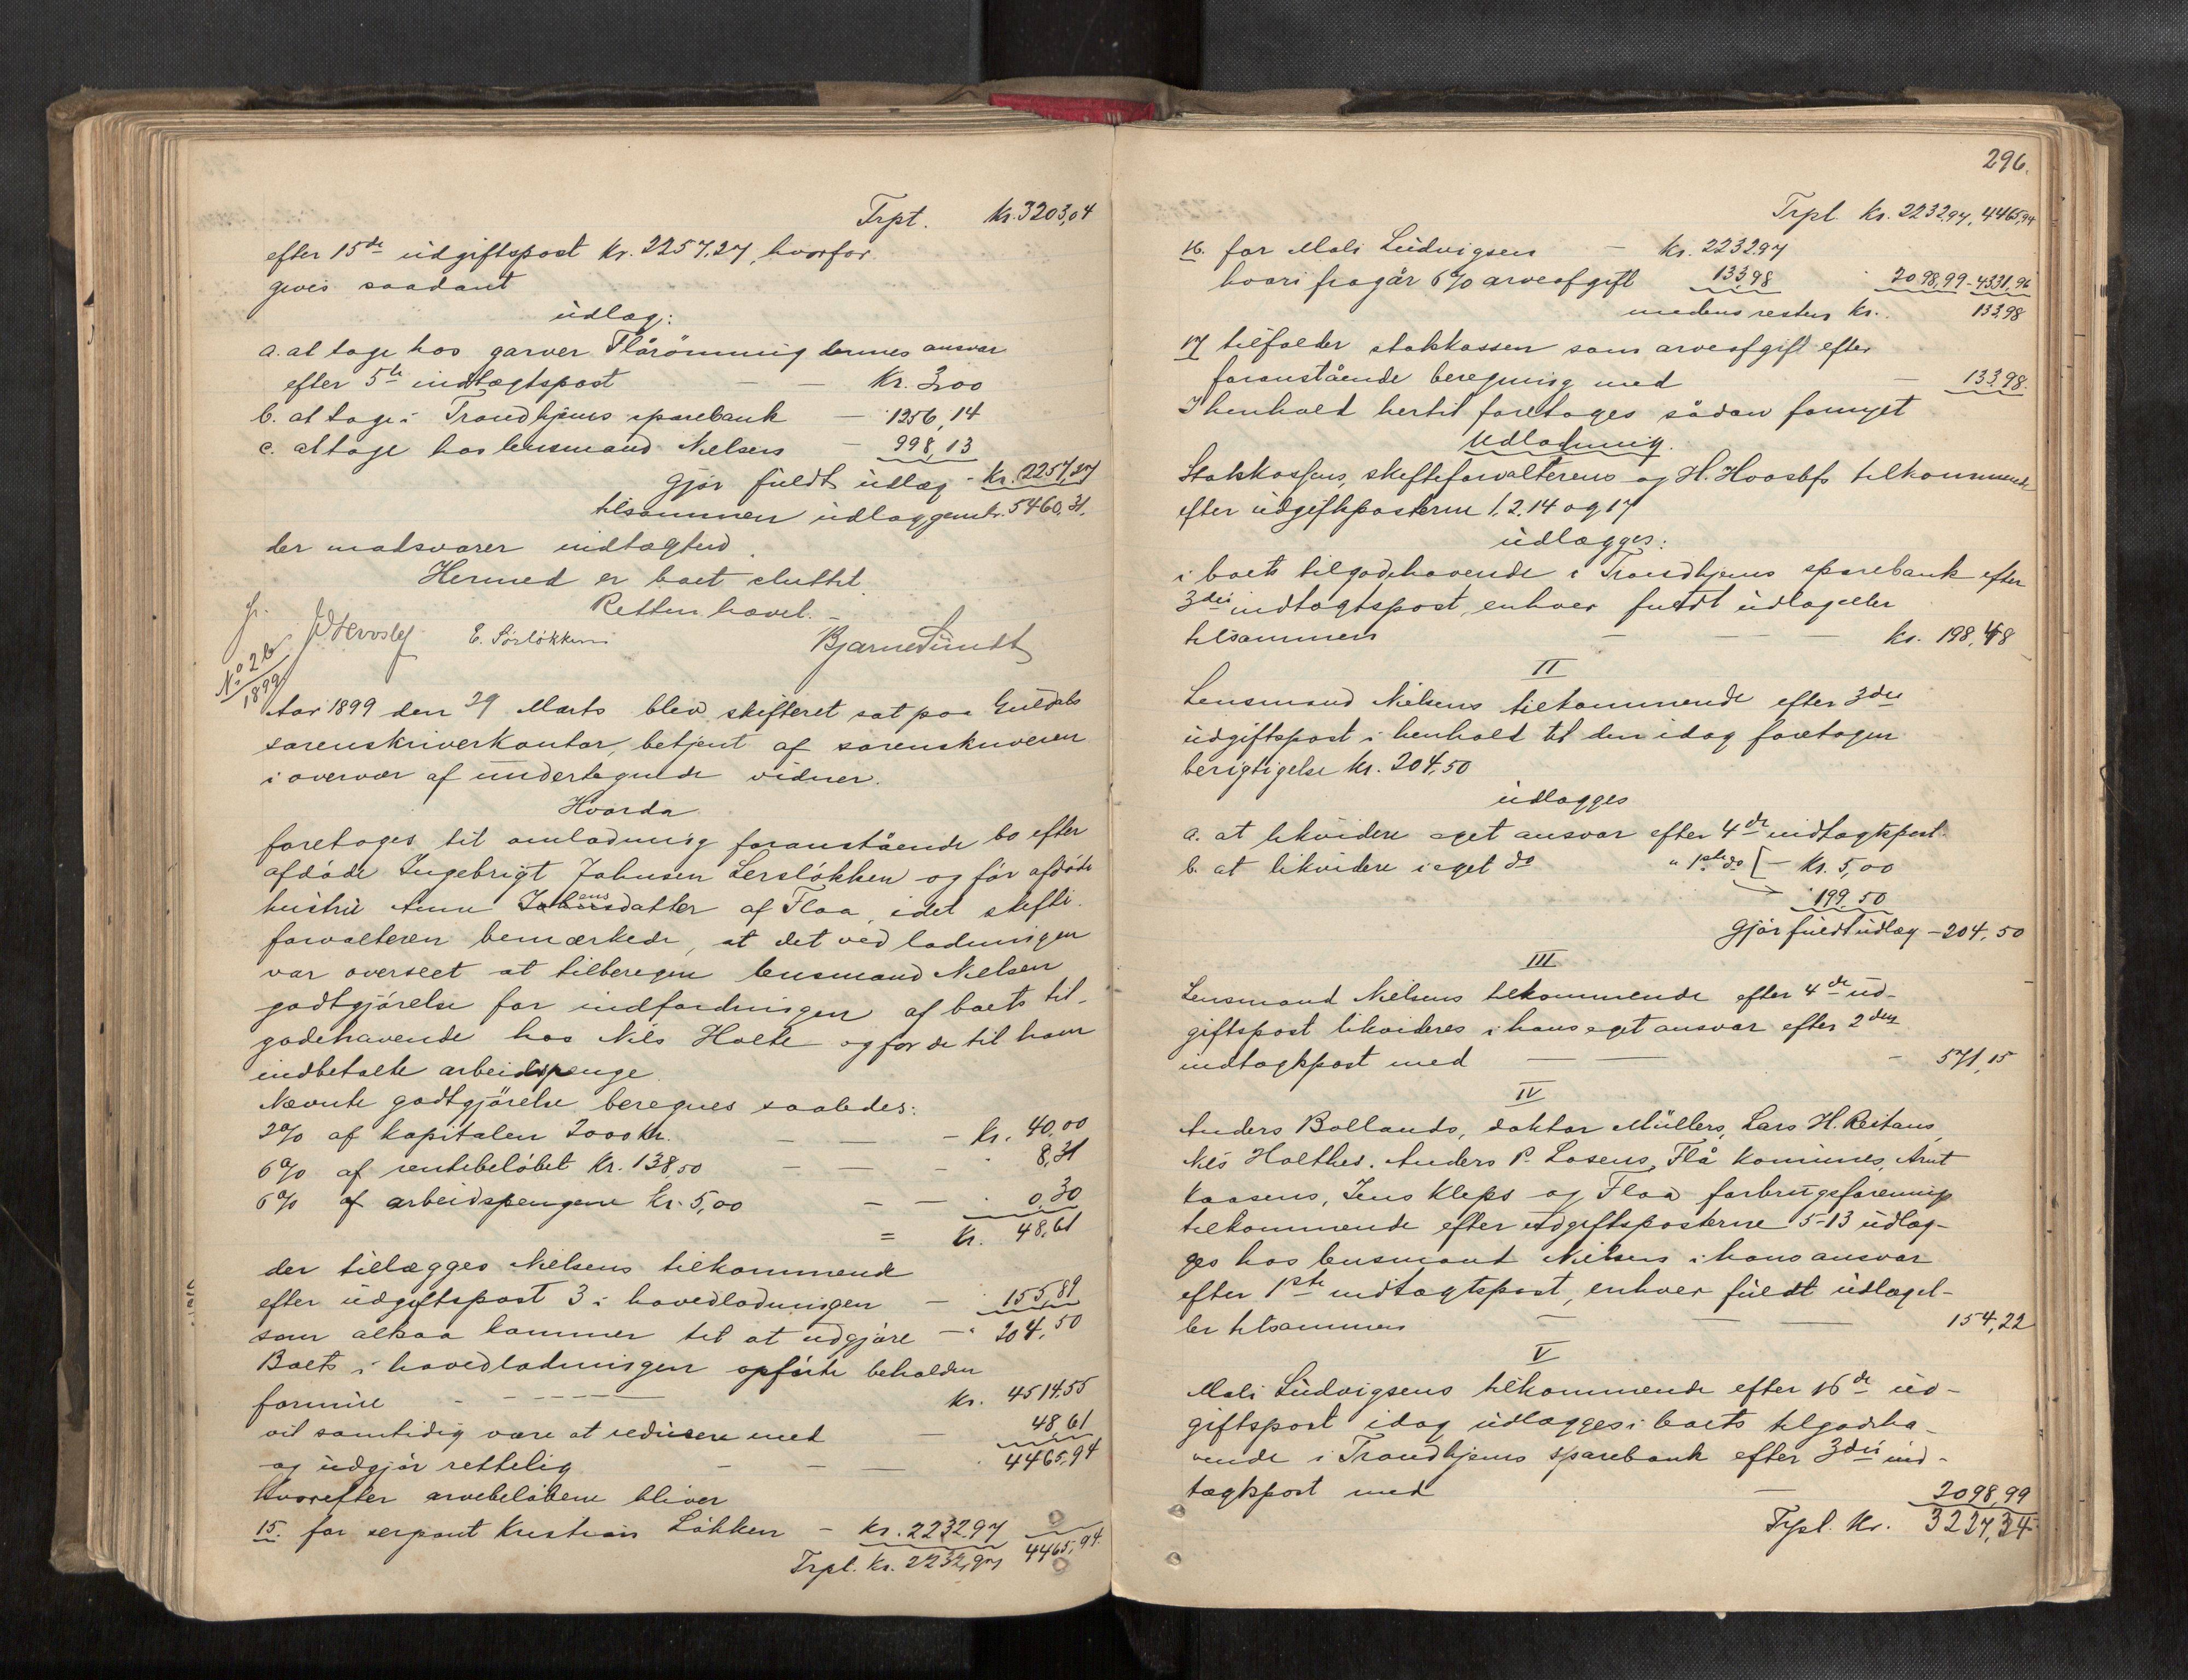 Trpt. Kr. 3203,04
efter 15de udgiftspost kr. 2257,27, hvorfor
gives saadant
udlæg:
a. at tage hos garver Flårönning dennes ansvar
efter 5te indtægtspost — — Kr. 3,00
b. at tage i Trondhjems sparebank — " 1256,14
c. at tage hos lensmand Nielsen — 998,13
Gjör fuldt udlæg - Kr. 2257,27
tilsammen udlagt kr. 5460,31.
der modsvarer indtægten.
Hermed er boet sluttet.
Retten hævet. —
E. Sörlökken Bjarne Sundt
No 26/1899
Aar 1899 den 29 Marts blev skifteret sat paa Guldals
sorenskriverkontor, betjent af sorenskriveren
i overvær af undertegnede vidner.
Hvorda
foretoges til omlodning foranstående bo efter
afdöde Ingebrigt Johnsen Lerslökken og för afdöde
hustru Anne Johnsensdatter af Flaa, idet skifte-
forvalteren bemærkede, at det ved lodningen
var overseet at tilberegne lensmand Nielsen
godtgjörelse for indfordringen af boets til-
godehavende hos Nils Holte og for de til ham
indbetalte arbeidspenge.
Nævnte godtgjörelse beregnes saaledes:
2% af kapitalen 2000 kr. — — - kr. 40,00
6% af rentebelöbet kr. 138,50 — — - " 8,31
6% af arbeidspengene kr. 5,00 — — " 0,30
= kr. 48,61
der tillægges Nielsens tilkommende
efter udgiftspost 3 i hovedlodningen — " 155,89
som altsaa kommer til at udgjöre — " 204,50
Boets i hovedlodningen opförte beholdne
formue - - - - - - kr. 4514,55
vil samtidig være at reducere med — 48,61
og udgjör rettelig - — — " 4465,94
hvorefter arvebelöbene bliver
15. for serjant Kristian Lökken — kr. 2232,97
Trpt. Kr. 2232,97 4465,94.
296.
Trpt. Kr. 2232,97, 4465,94
16. for Mali Ludvigsen — kr. 2232,97
hvori fragår 6% arveafgift 133,98 " 2098,99 - 4331,96
medens resten kr. 133,98
17 tilfalder statskassen som arveafgift efter
foranstående beregning med — 133,98.
I henhold hertil foretoges sådan fornyet
Udlodning.
Statskassens, skifteforvalterens og H. Hoosöfs tilkommende
efter udgiftsposterne 1, 2, 14 og 17
udlægges:
i boets tilgodehavende i Trondhjems sparebank efter
3die indtægtspost, enhver fuldt udlæg eller
tilsammen — — — kr. 198,48
II
Lensmand Nielsens tilkommende efter 3die
udgiftspost i henhold til den idag foretagne
berigtigelse kr. 204,50
udlægges
a. at likvidere eget ansvar efter 4de indtægtspost
b. at likvidere i eget do " 1ste do [ — kr. 5,00
199,50
Gjör fuldt udlæg - 204,50
III
Lensmand Nielsens tilkommende efter 4de ud-
giftspost likvideres i hans eget ansvar efter 2den
indtægtspost med — — - 571,15
IV
Anders Bollands, doktor Müllers, Lars H. Reitans,
Nils Holthes, Anders P. Losens, Flå komunes, Arnt
Kaasens, Jens Kleps og Flaa forbrugsforenings
tilkommende efter udgiftsposterne 5-13 udlæg-
ges hos lensmand Nielsen i hans ansvar
efter 1ste indtægtspost, enhver fuldt udlæg el-
ler tilsammen — — — 154,22
V
Mali Ludvigsens tilkommende efter 16de ud-
giftspost idag udlægges i boets tilgodeha-
vende i Trondhjems sparebank efter 3die ind-
tægtspost med — 2098,99
Trpt. Kr. 3227,34